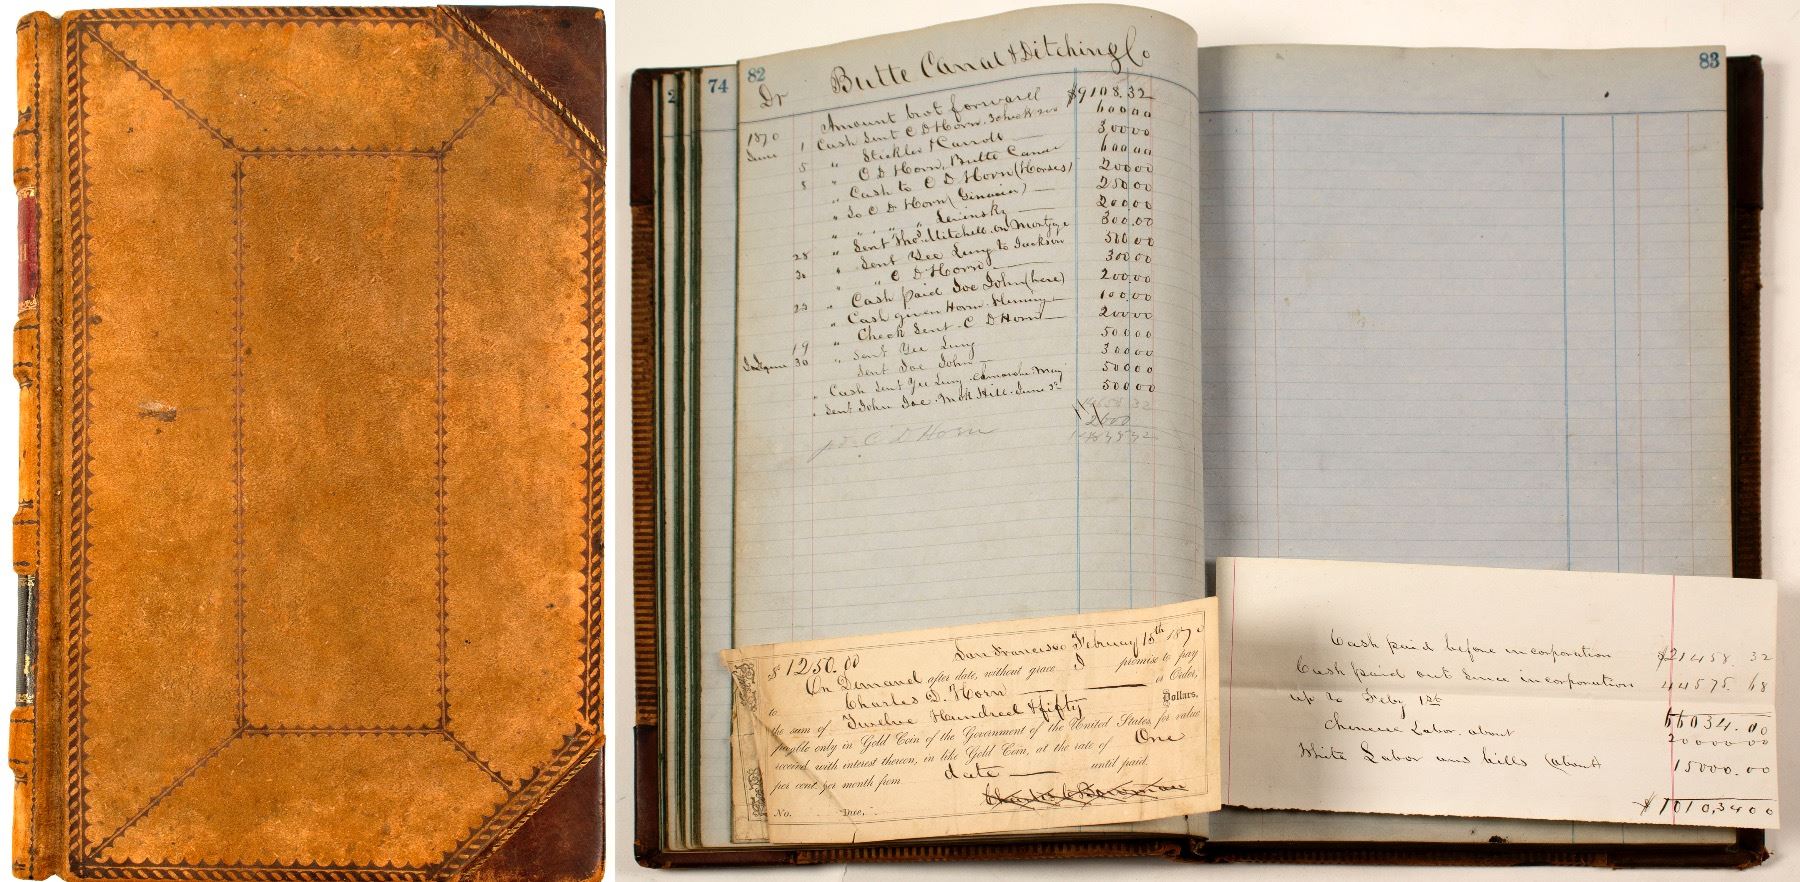 74
82
83
Butte Canal & Ditching Co
Dr
Amount brot forward $9108.32
1870
June 1 Cash Sent C D Horn 600 00
" Stickles & Carroll 300 00
5 " C D Horn, Butte Canal 600 00
8 " Cash to C D Horn (Horses) 200 00
" To C D Horn 250 00
" " " " Levinsky 200 00
" Sent Thos Mitchell on Mortgage 300.00
28 " Sent Yee Lung to Jackson 500 00
30 " " C D Horn 300 00
" Cash paid Joe John (here) 200.00
23 " Cash given Horn Fleming 100.00
" Check Sent C D Horn 200 00
19 " Sent Yee Lung 500 00
30 Sent Joe John 300 00
" Cash Sent Yee Lung Camanche May 500 00
" Sent John Joe Mok Hill June 500 00
C D Horn
$1250.00 San Francisco February 15th 1870
On Demand after date, without grace I promise to pay
to Charles D. Horn or Order,
the sum of Twelve Hundred & fifty Dollars,
payable only in Gold Coin of the Government of the United States, for value
received, with interest thereon, in like Gold Coin, at the rate of One
per cent. per month from date until paid.
No. Due,
Cash paid before incorporation $21458.32
Cash paid out Since incorporation 44575 68
up to Feby 1st
66034.00
Chinese Labor about 20000 00
White Labor and bills (about 15000.00
$101034 00